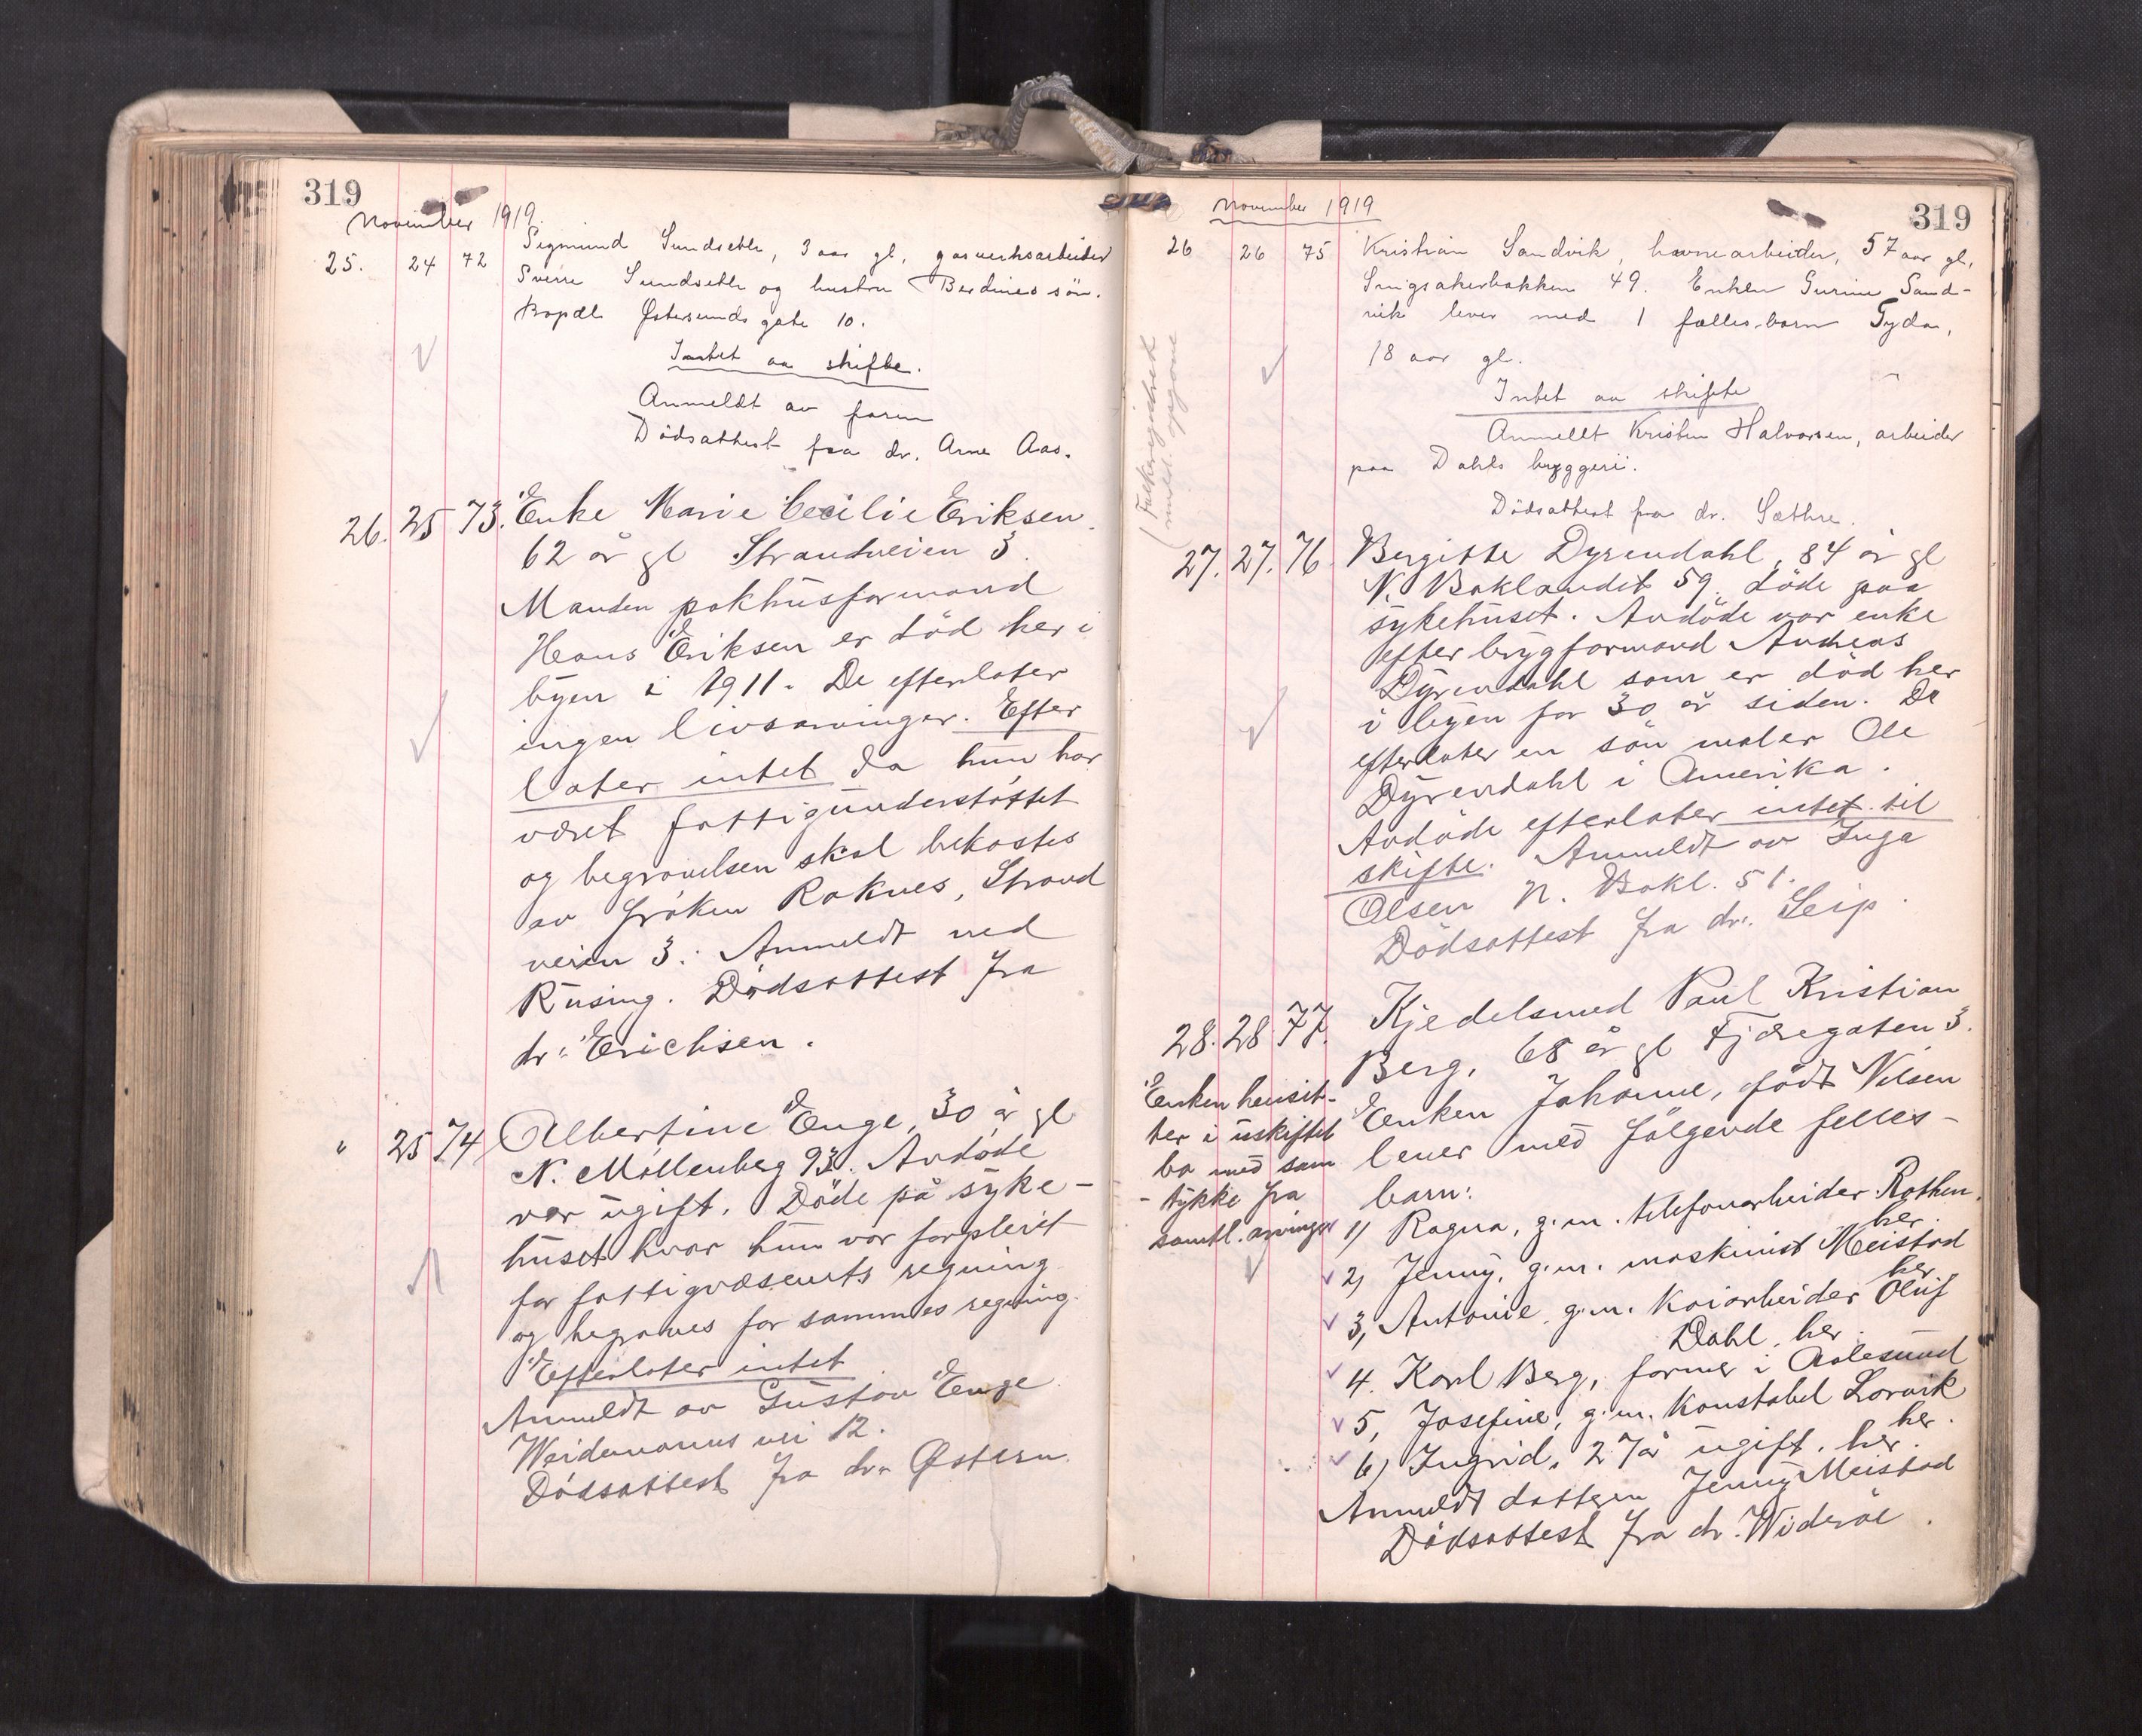 319
November 1919.
25. 24 72 Sigmund Sundseth, 3 aar gl, gasverksarbeider
Sverre Sundseth og hustru Berdines sön.
Bopæl Østersunds gate 10.
Intet aa skifte.
Anmeldt av faren
Dödsattest fra dr. Arne Aas.
26. 25 73. Enke Marie Cecilie Eriksen
62 år gl Strandveien 3.
Manden pakhusformand
Hans Eriksen er död her i
byen i 1911. De efterlater
ingen livsarvinger. Efter
later intet da hun har
været fattigunderstöttet
og begravelsen skal bekostes
av fröken Roknes, Strand
veien 3. Anmeldt ved
Rusing. Dödsattest fra
dr. Erichsen.
" 25 74 Albertine Enge, 30 år gl
N. Möllenberg 93. Avdöde
var ugift. Döde på syke-
huset hvor hun var forpleiet
for fattigvæsenets regning
og begraves for sammes regning.
Efterlater intet
Anmeldt av Gustav Enge
Weidemanns vei 12.
Dödsattest fra dr. Østern.
319
November 1919
26 26 75 Kristian Sandvik, havnearbeider, 57 aar gl,
Singsakerbakken 49. Enken Gurine Sand-
vik lever med 1 fælles barn Gyda,
18 aar gl.
Intet aa skifte
Anmeldt Kristen Halvorsen, arbeider
paa Dahls bryggeri.
Dödsattest fra dr. Sæthre.
27. 27. 76 Bergitte Dyrendahl, 84 år gl
N. Baklandet 59. döde paa
sykehuset. Avdöde var enke
efter brygformand Andreas
Dyrendahl som er död her
i byen for 30 år siden. De
efterlater en sön maler Ole
Dyrendahl i Amerika.
Avdöde efterlater intet til
skifte. Anmeldt av Inga
Olsen N. Bakl. 51.
Dödsattest fra dr. Seip.
28. 28 77. Kjedelsmed Paul Kristian
Berg, 68 år gl Fjæregaten 3.
Enken Johanne, född Nilsen
lever med fölgende felles-
barn:
Enken hensit-
ter i uskiftet
bo med sam
-tykke fra
samtl. arvinger
1) Ragna, g.m. telefonarbeider Rothen,
her.
2) Jenny, g.m. maskinist Meistad
her
3, Antonie, g.m. Kaiarbeider Oluf
Dahl, her.
4. Karl Berg, former i Aalesund
5, Josefine, g.m. Konstabel Lorvik
her.
6) Ingrid, 27 år ugift, her.
Anmeldt datteren Jenny Meistad
Dödsattest fra dr. Wideröe.